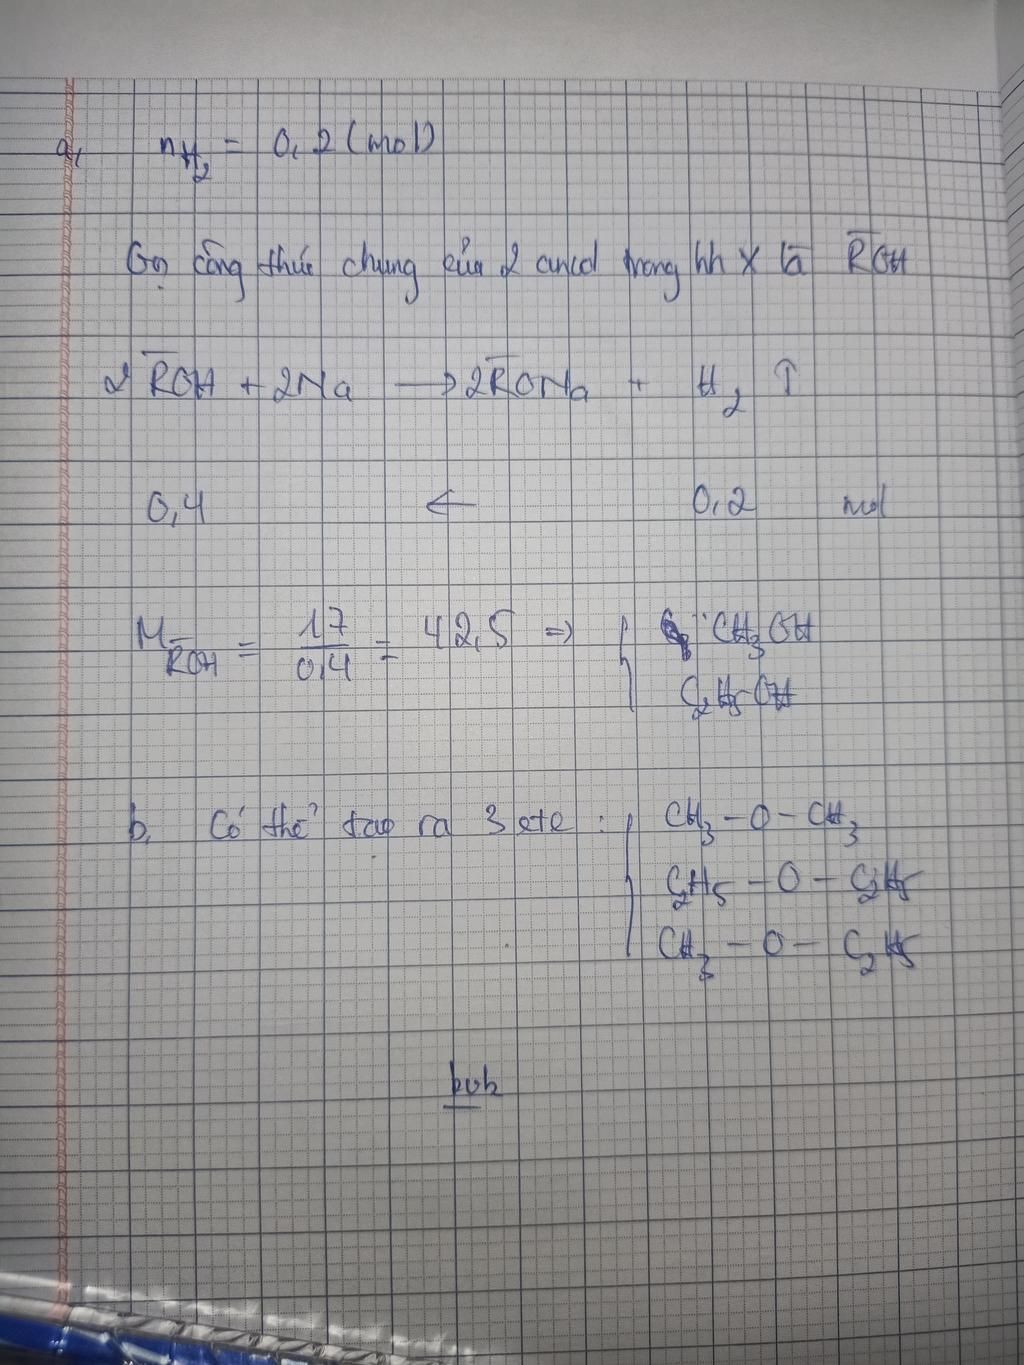 a, nH₂ = 0,2 (mol)
Gọi công thức chung của 2 ancol trong hh X là R̅OH
2R̅OH + 2Na → 2R̅ONa + H₂ ↑
0,4 ← 0,2 mol
M R̅OH = 17/0,4 = 42,5 ⇒ { CH₃OH
C₂H₅OH
b, Có thể tạo ra 3 ete : { CH₃ – O – CH₃
C₂H₅ – O – C₂H₅
CH₃ – O – C₂H₅